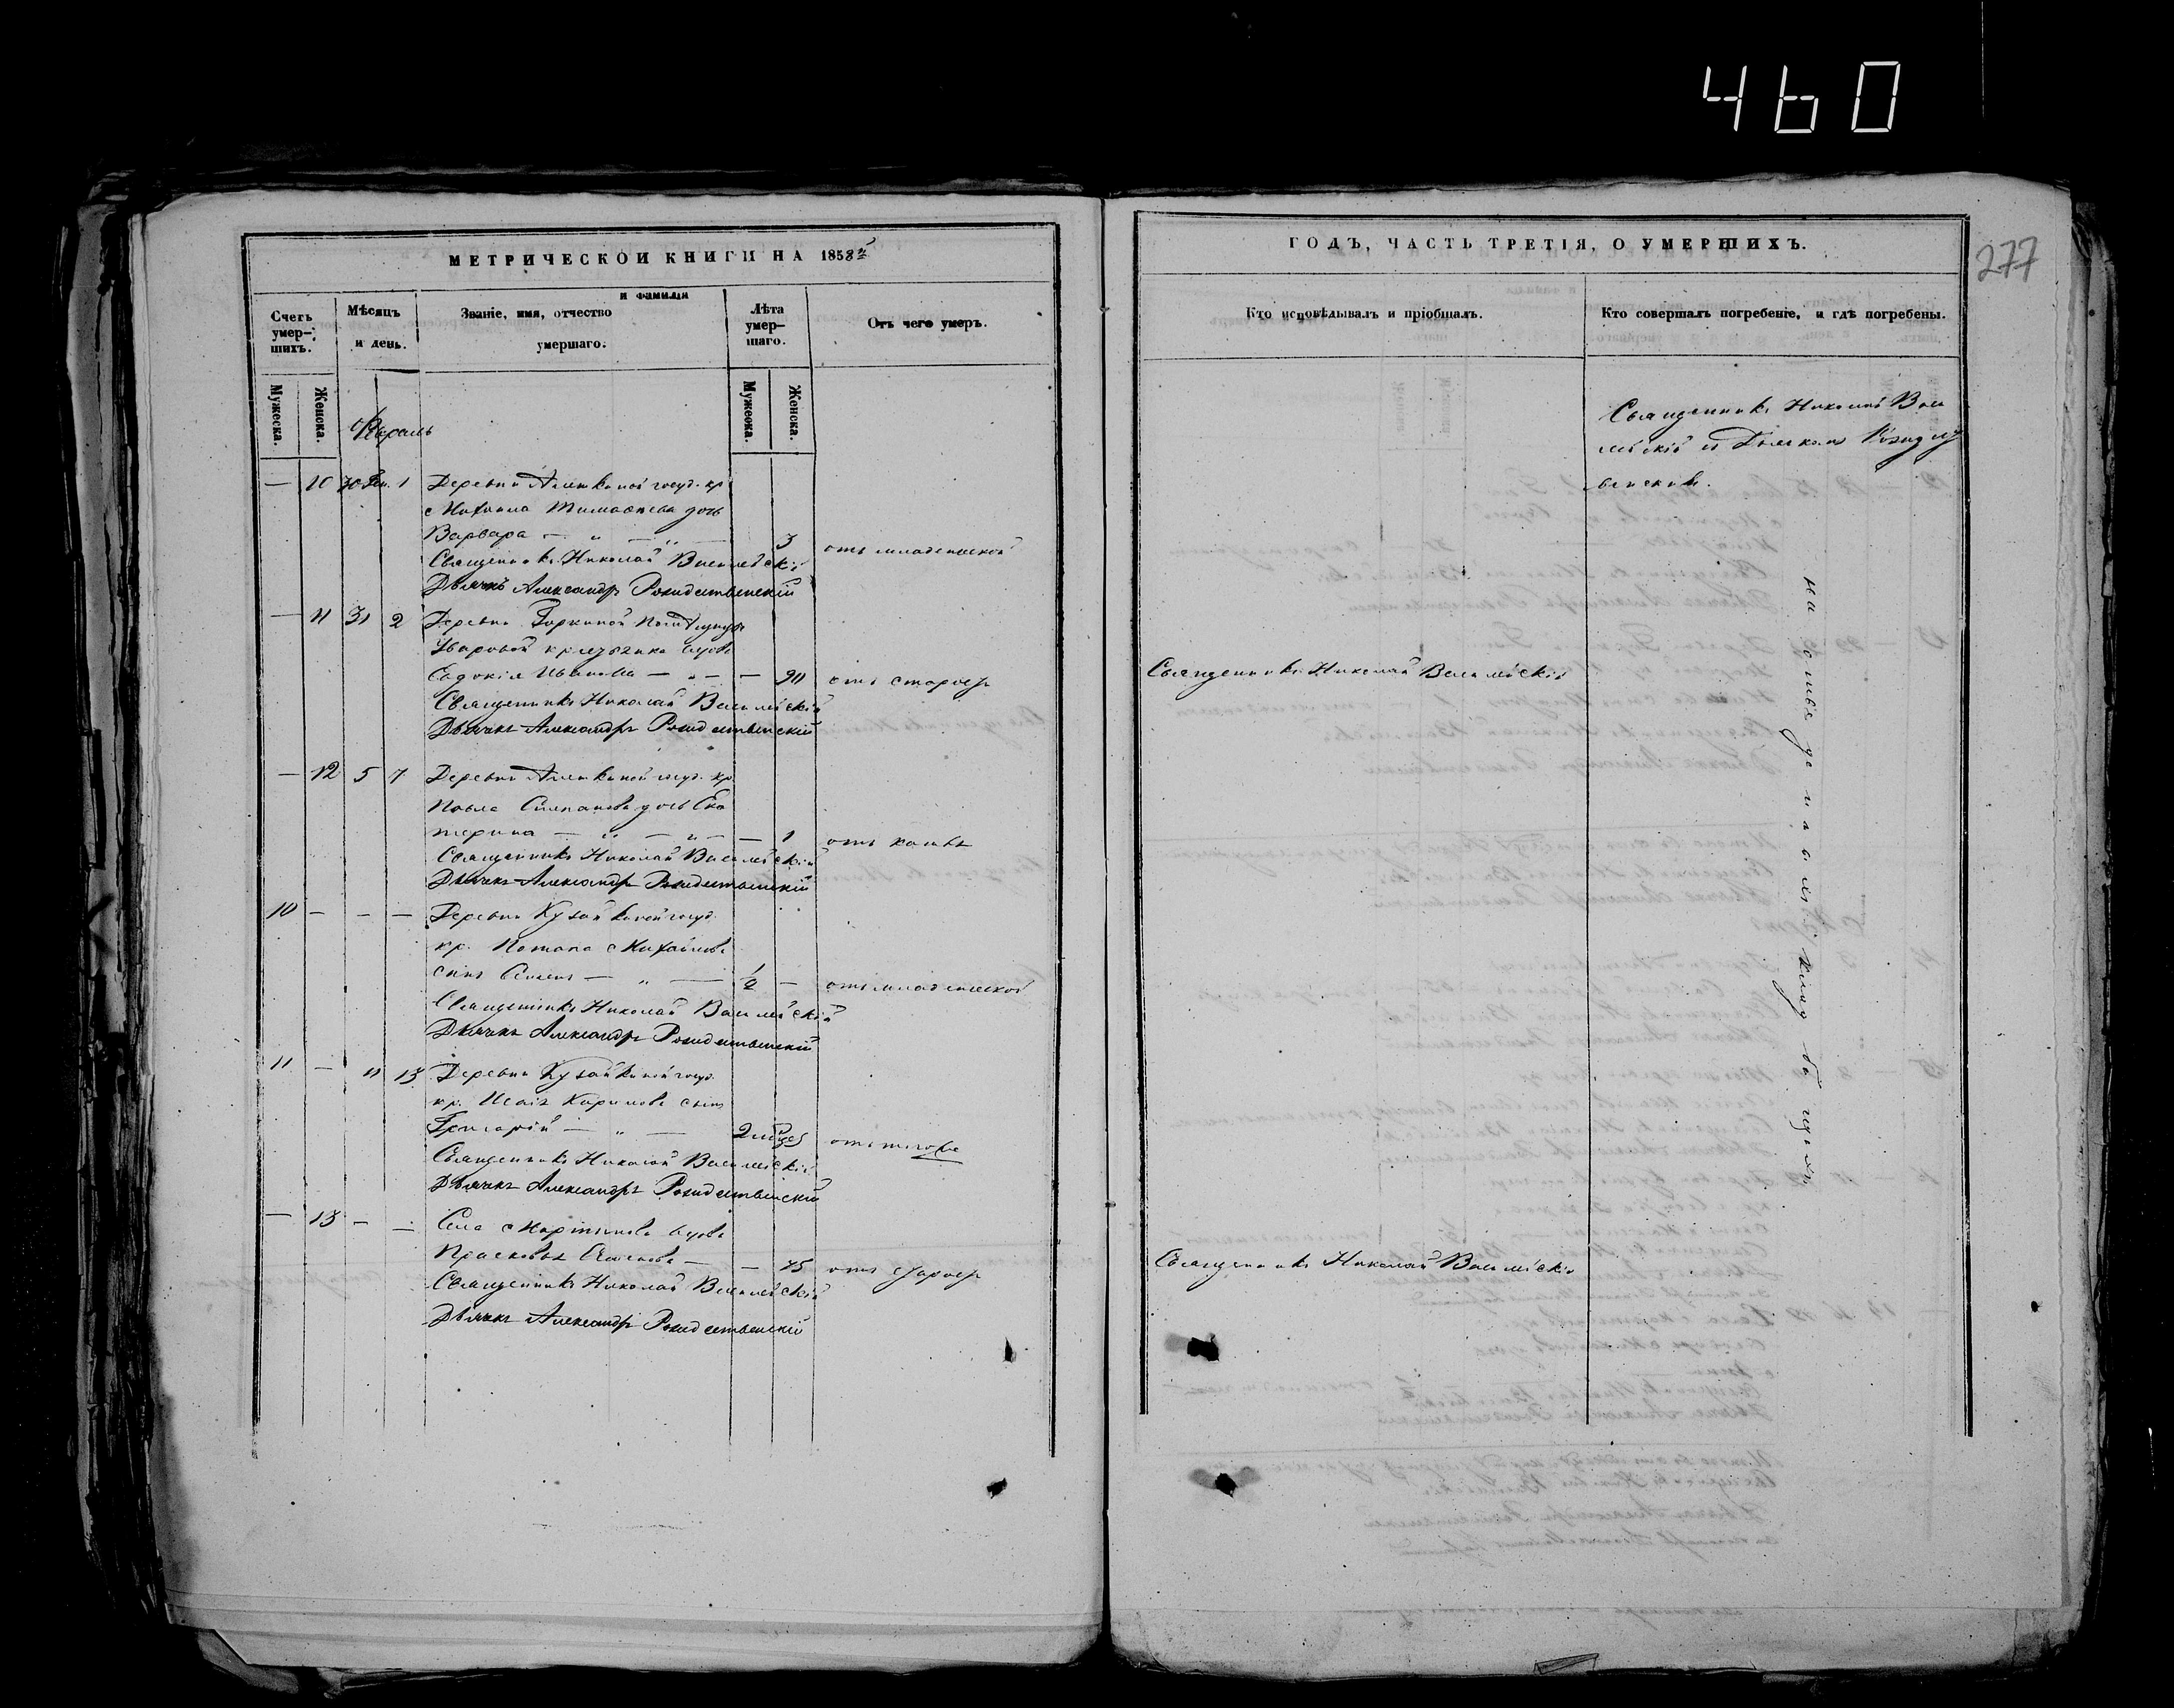 460
277
МЕТРИЧЕСКОЙ КНИГИ НА 1858й
Счетъ умер-шихъ.
Мужеска.
Женска.
Мѣсяцъ и день.
Званіе, имя, отчество и фамилія умершаго.
Лѣта умер-шаго.
Мужеска.
Женска.
Отъ чего умеръ.
Февраль
— 10 30 Ген. 1 Деревни госуд. кр
Михаила Тимофеева дочь
Варвара — „ — „ — 3 отъ младенческой
Священникъ Николай Васильевскій
Дьячекъ Александръ Рождественскій
— 11 31 2 Деревни Горкиной
Уваровой вдова
Евдокія Иванова — „ — — 90 отъ старости
Священникъ Николай Васильевскій
Дьячекъ Александръ Рождественскій
— 12 5 7 Деревни госуд. кр
Павла Степанова дочь Ека
терина — „ — „ — — 1 отъ кашля
Священникъ Николай Васильевскій
Дьячекъ Александръ Рождественскій
10 — — — Деревни госуд.
кр. Потапа Михайлова
сынъ Семенъ — „ — 1/2 — отъ младенческой
Священникъ Николай Васильевскій
Дьячекъ Александръ Рождественскій
11 — 11 13 Деревни госуд.
кр. Исаія сынъ
Григорій — „ — 2
Священникъ Николай Васильевскій
Дьячекъ Александръ Рождественскій
— 13 — — Села Мартынова вдова
Прасковья — — 75 отъ старости
Священникъ Николай Васильевскій
Дьячекъ Александръ Рождественскій
ГОДЪ, ЧАСТЬ ТРЕТІЯ, О УМЕРШИХЪ.
Кто исповѣдывалъ и пріобщалъ.
Кто совершалъ погребеніе, и гдѣ погребены.
Священникъ Николай Васи
льевскій съ Дьячкомъ Рождест
венскимъ.
Священникъ Николай Васильевскій
Священникъ Николай Васильевскій
на кладбищѣ